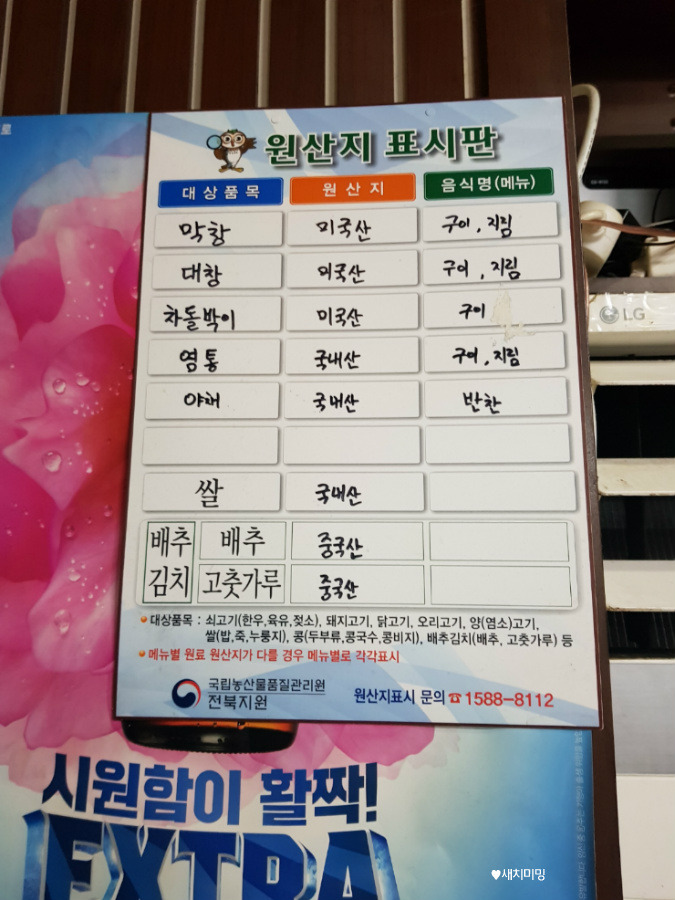 로
원산지 표시판
대상품목 원산지 음식명(메뉴)
막창 미국산 구이, 지림
대창 미국산 구이, 지림
차돌박이 미국산 구이
염통 국내산 구이, 지림
야채 국내산 반찬
쌀 국내산
배추김치 배추 중국산
고춧가루 중국산
대상품목 : 쇠고기(한우,육유,젖소), 돼지고기, 닭고기, 오리고기, 양(염소)고기,
쌀(밥,죽,누룽지), 콩(두부류,콩국수,콩비지), 배추김치(배추, 고춧가루) 등
메뉴별 원료 원산지가 다를 경우 메뉴별로 각각표시
국립농산물품질관리원
전북지원
원산지표시 문의 ☎1588-8112
LG
시원함이 활짝!
EXTRA
♥새치미밍